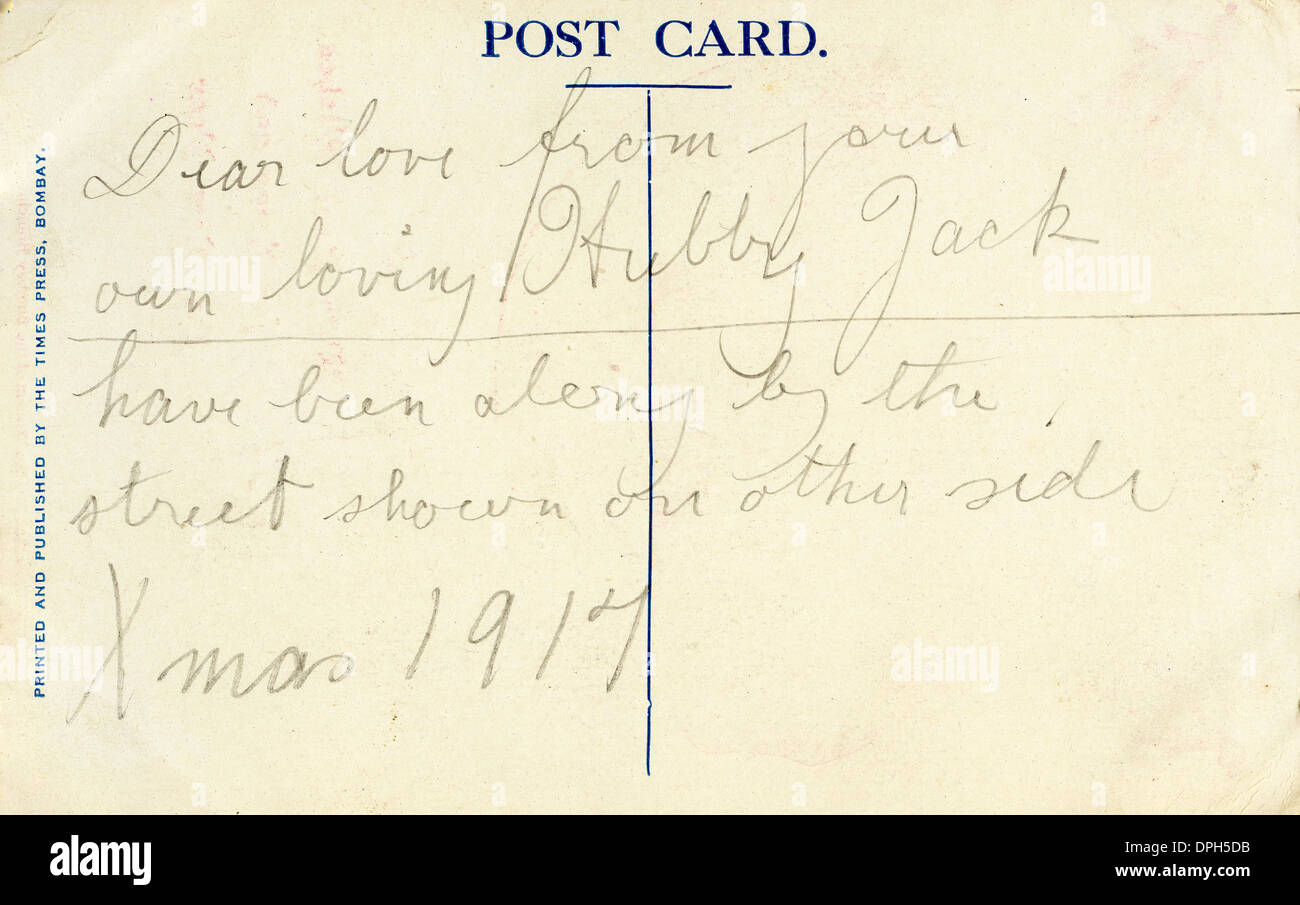 POST CARD.
PRINTED AND PUBLISHED BY THE TIMES PRESS, BOMBAY.
Dear love from your
own loving Hubby Jack
have been along by the
street shown on other side
Xmas 1917
alamy
Image ID: DPH5DB
www.alamy.com